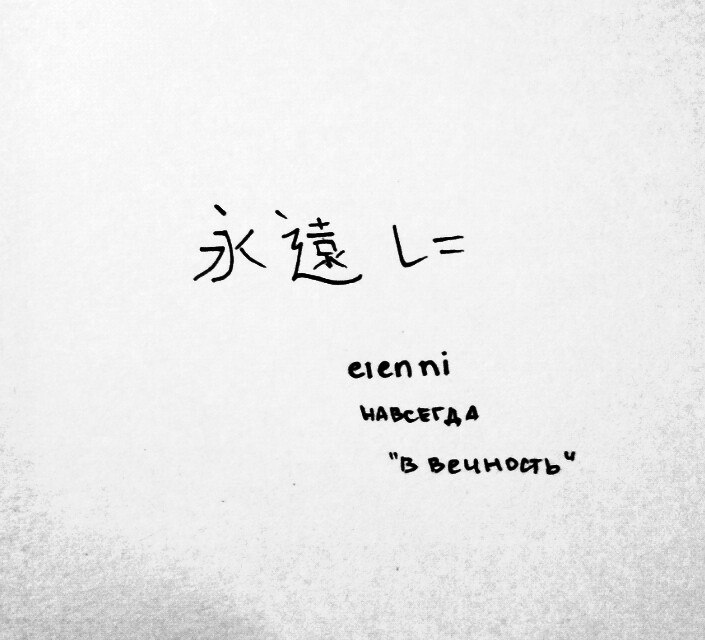 永遠に
eienni
навсегда
"в вечность"